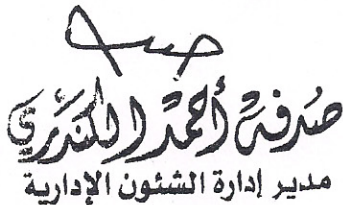 صدفة أحمد الكندري
مدير إدارة الشئون الإدارية